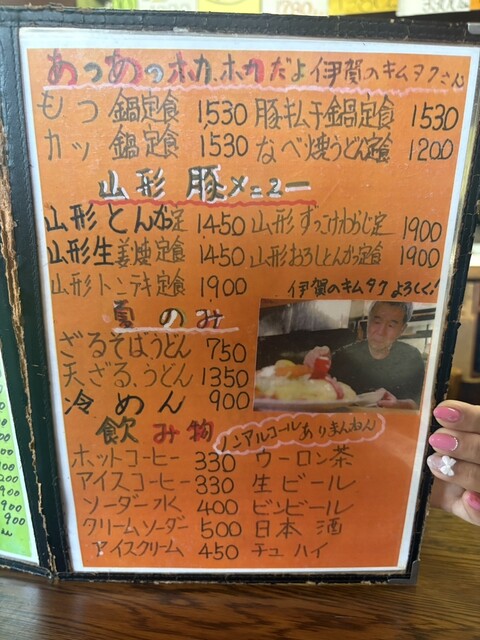 あつあつホカホカだよ伊賀のキムタクさん
もつ鍋定食 1530 豚キムチ鍋定食 1530
カツ鍋定食 1530 なべ焼うどん定食 1200
山形豚メニュー
山形とんかつ定 1450 山形ずっこけわらじ定 1900
山形生姜焼定食 1450 山形おろしとんかつ定食 1900
山形トンテキ定食 1900 伊賀のキムタクよろしく!
夏のみ
ざるそば、うどん 750
天ざる、うどん 1350
冷めん 900
飲み物 ノンアルコールありまんねん
ホットコーヒー 330 ウーロン茶
アイスコーヒー 330 生ビール
ソーダー水 400 ビンビール
クリームソーダー 500 日本酒
アイスクリーム 450 チューハイ